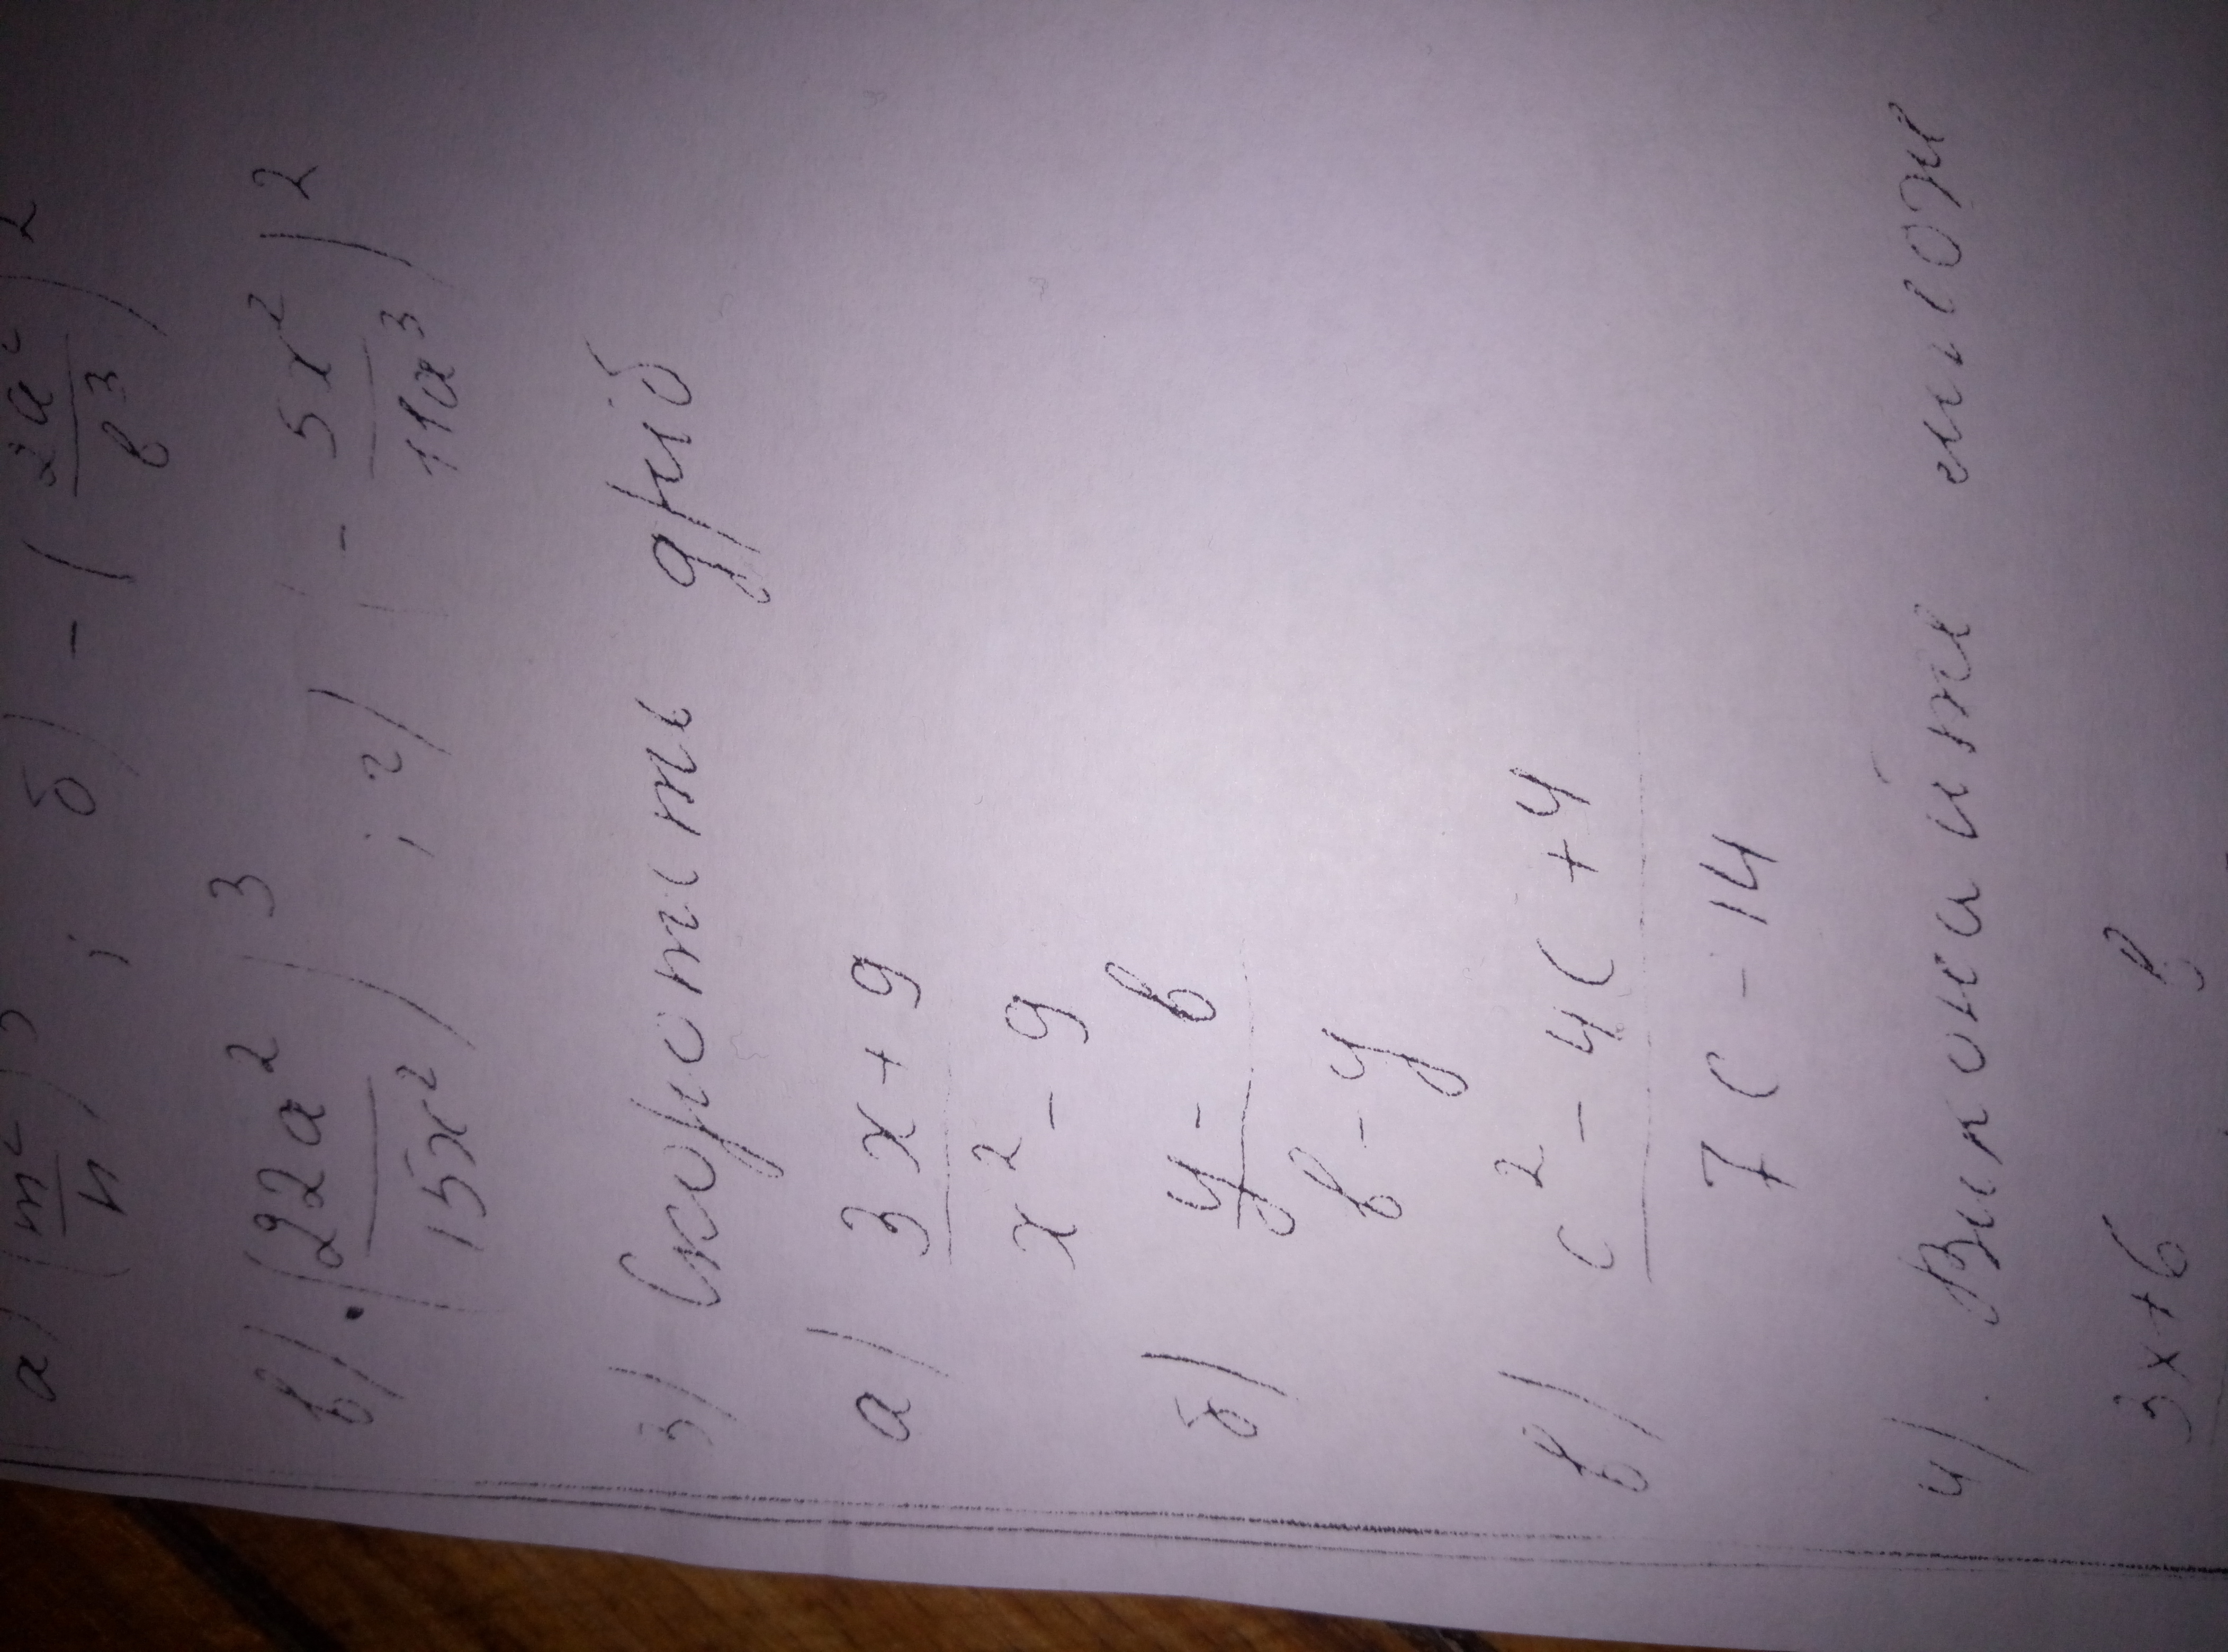 а) (m²/n)³ ; б) -(2a²/b³)²
в) (22a²/15x²)³ ; г) (-5x²/11a³)²
3) Скоротіть дріб
а) 3x+9
x²-9
б) y-b
b-y
в) c²-4c+4
7c-14
4). Виконайте множ
3x+6 b